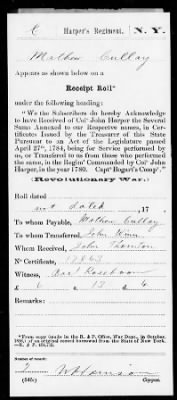 C Harper's Regiment, N. Y.
Mathew Cullay
Appears as shown below on a
Receipt Roll*
under the following heading:
"We the Subscribers do hereby Acknowledge
to have Received of Col John Harper the Several
Sums Annexed to our Respective names, in Cer-
tificates Issued by the Treasurer of this State
Pursuant to an Act of the Legislature passed
April 27th, 1784, being for Service performed by
us, or Transfered to us from those who performed
the same, in the Regim Commanded by Col John
Harper, in the year 1780. Cap Bogart's Comp."
(Revolutionary War.)
Roll dated
not dated , 17 .
To whom Payable, Mathew Cullay
To whom Transferred, John Winn
Whom Received, John Thornton
N Certificate, 17863
Witness,
£ 6 13 4
Remarks:
*From copy (made in the R. & P. Office, War Dept., in October,
of an original record borrowed from the State of New York.
—R. & P.
Number of record:
2
Copyist.